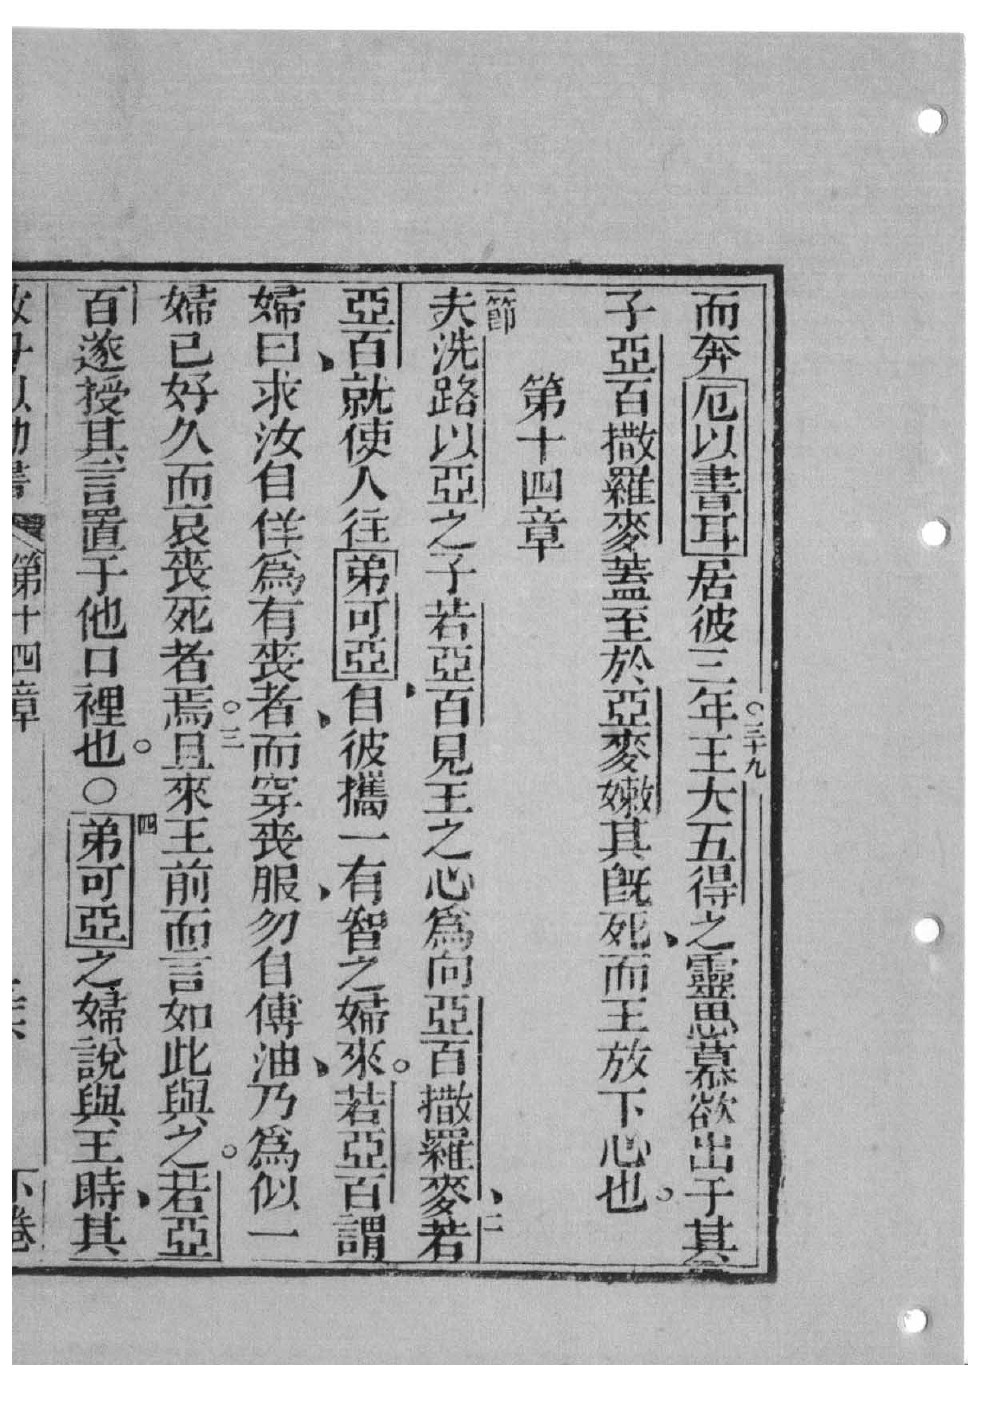 而奔厄以書耳居彼三年○三十九王大五得之靈思慕欲出于其
子亞百撒羅麥蓋至於亞麥嫩其既死而王放下心也。
第十四章
一節夫洗路以亞之子若亞百見王之心為向亞百撒羅麥、二若
亞百就使人往弟可亞、自彼攜一有智之婦來。若亞百謂
婦曰、求汝自佯為有喪者、而穿喪服、勿自傅油、乃為似一
婦已好久而哀喪死者焉。三且來王前而言如此與之。若亞
百遂授其言置于他口裡也。○四弟可亞之婦說與王時、其
第十四章 下卷